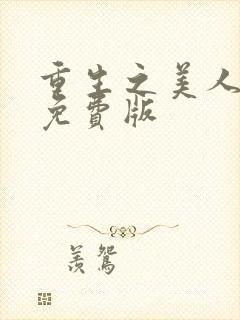 重生之美人
免費版
羨鴛